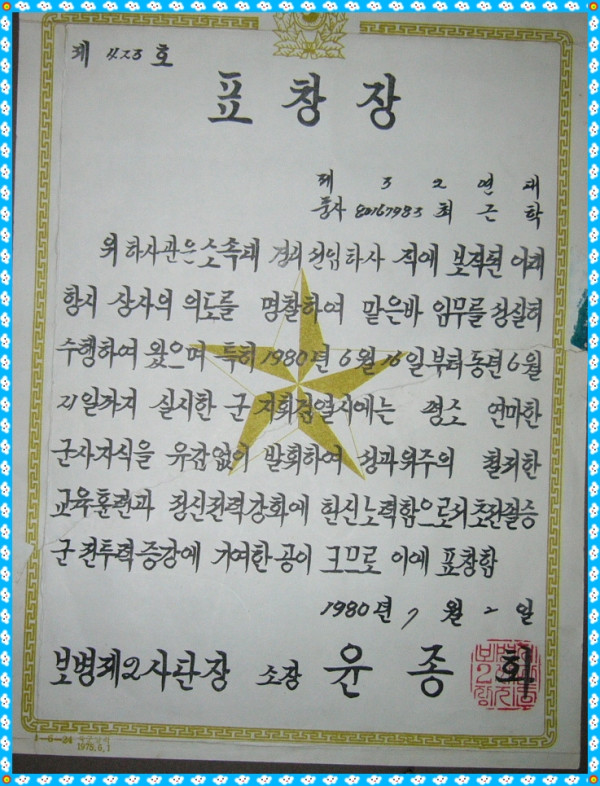 제 423 호
표 창 장
제 3 2 연 대
중사 80167983 최 근 학
위 하사관은 소속대 선임하사 직에 보직된 이래
항시 상사의 의도를 명찰하여 맡은바 임무를 성실히
수행하여 왔으며 특히 1980년 6월 16일부터 동년 6월
21일까지 실시한 군 지휘검열시에는 평소 연마한
군사지식을 유감없이 발휘하여 성과위주의 철저한
교육훈련과 정신전력강화에 헌신노력함으로서 초전필승
군 전투력 증강에 기여한 공이 크므로 이에 표창함
1980년 7월 2일
보병제2사단장 소장 윤 종 화
1-6-24
1975.6.1